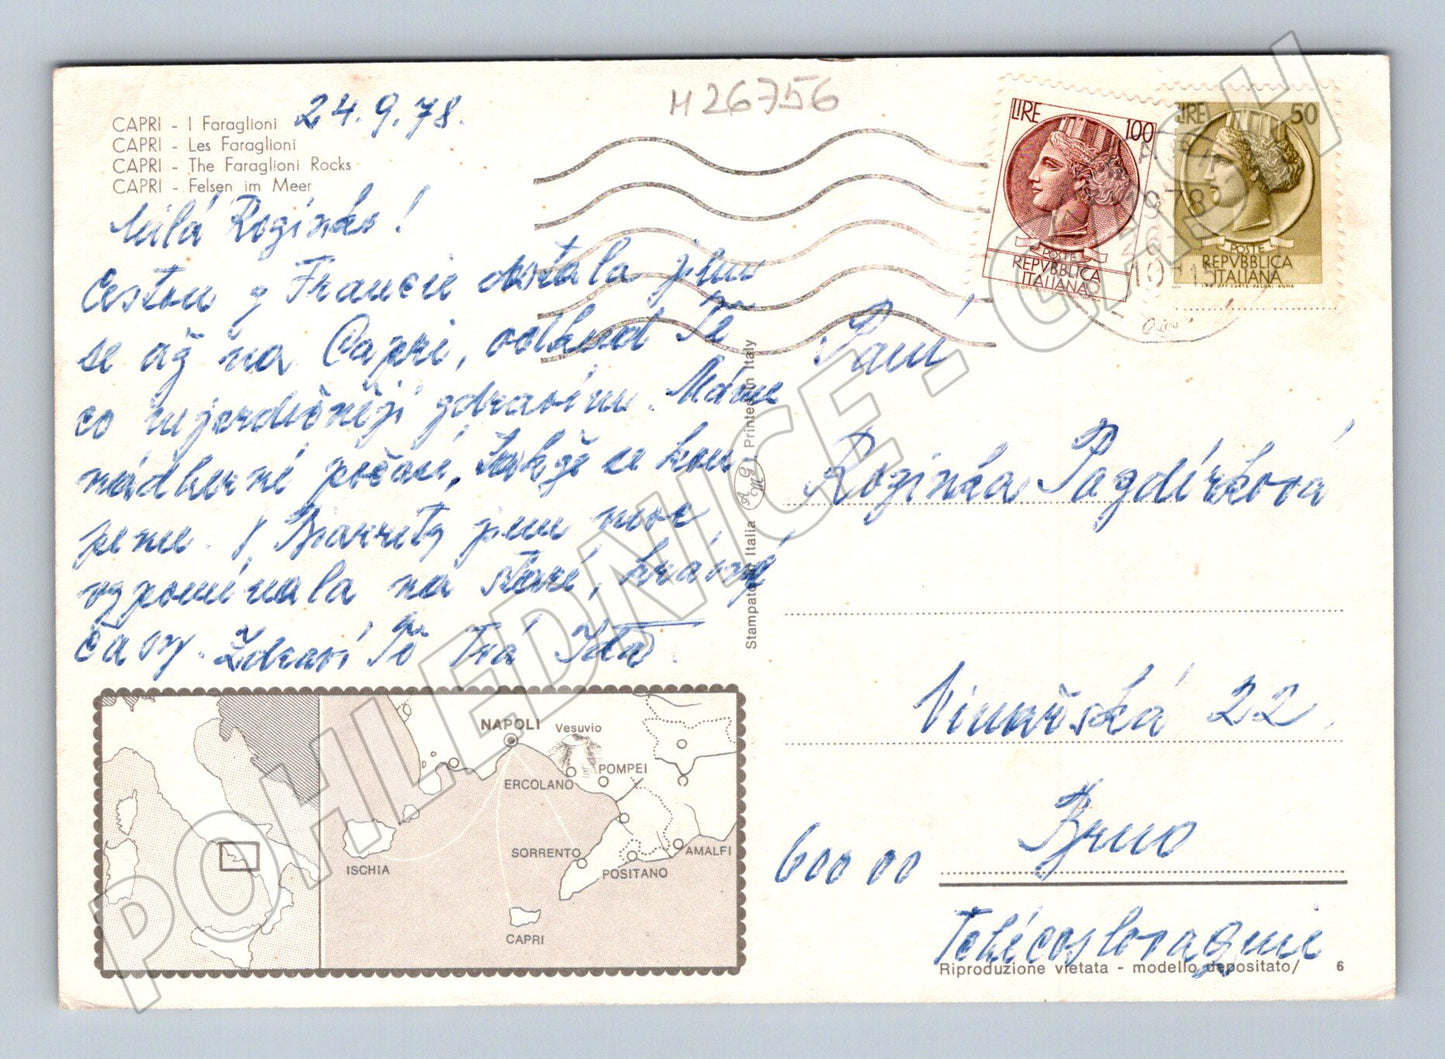 CAPRI - I Faraglioni
CAPRI - Les Faraglioni
CAPRI - The Faraglioni Rocks
CAPRI - Felsen im Meer
24.9.78.
M26756
LIRE 100
POSTE
REPVBBLICA
ITALIANA
LIRE 50
POSTE
REPVBBLICA
ITALIANA
Milá Roginko!
Cestou z Francie dostala jsem
se až na Capri, odkud Tě
co nejsrdečněji zdravím. Máme
nádherné počasí, takže se kou
peme. V Biarritz jsem moc
vzpomínala na staré, krásné
časy. Zdraví Tě Tvá Ita
Paní
Roginka Pazdírková
Vinařská 22
Brno
600 00
Tchécoslovaquie
Stampato in Italia
Printed in Italy
NAPOLI
Vesuvio
ERCOLANO
POMPEI
ISCHIA
SORRENTO
POSITANO
AMALFI
CAPRI
Riproduzione vietata - modello depositato/ 6
POHLEDNICE - GACH